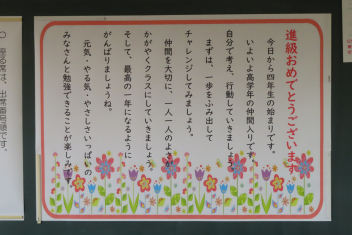 進級おめでとうございます
今日から四年生の始まりです。
いよいよ高学年の仲間入りです。
自分で考え、行動していきましょう。
まずは、一歩をふみ出して
チャレンジしてみましょう。
仲間を大切に、一人一人のよさが
かがやくクラスにしていきましょう。
そして、最高の一年になるように
がんばりましょうね。
元気・やる気・やさしさいっぱいの
みなさんと勉強できることが楽しみです
〇 座る席は、出席番号順です。